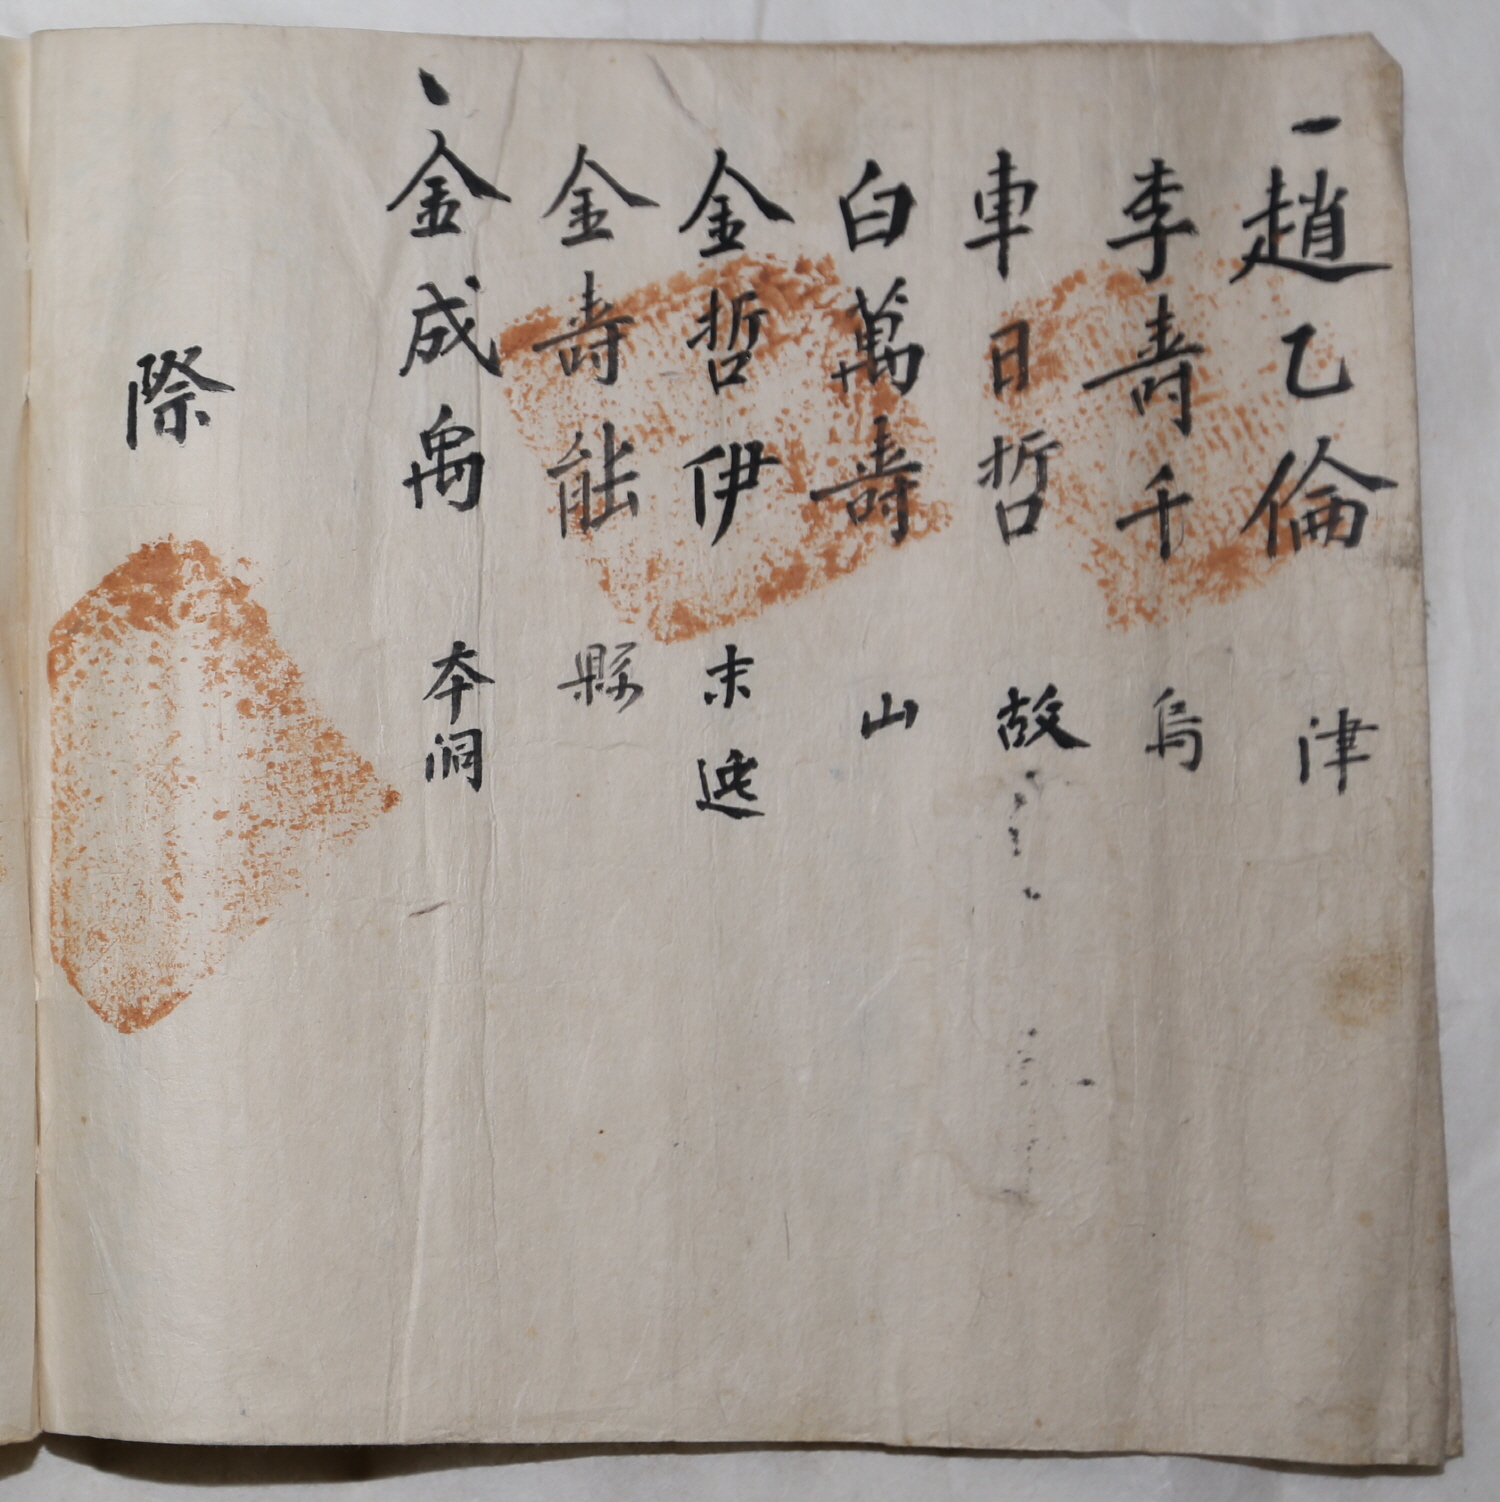 一趙乙倫 津
李壽千 烏
車日哲 故
白萬壽 山
金哲伊 末
金壽能 縣
丶金成禹 本洞
際